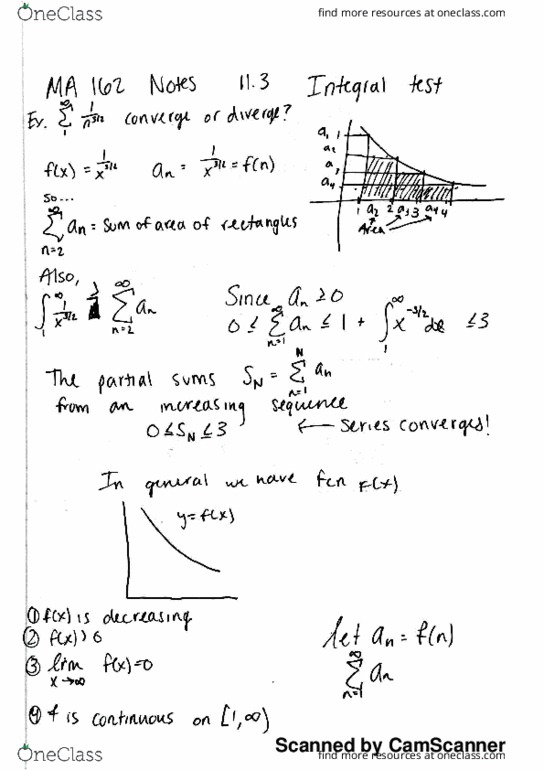 OneClass
find more resources at oneclass.com
MA 162 Notes 11.3 Integral test
Ex. ∞ Σ 1 1/n^3/2 converge or diverge?
f(x) = 1/x^3/2 an = 1/x^3/2 = f(n)
a, 1
a2
a3
a4
1 a2 2 a3 3 a4 4
Area
So...
∞ Σ n=2 an = sum of area of rectangles
Also,
∫ 1 ∞ 1/x^3/2 ≥ ∞ Σ n=2 an
Since an ≥ 0
0 ≤ ∞ Σ n=1 an ≤ 1 + ∫ 1 ∞ x^-3/2 dx ≤ 3
The partial sums SN = N Σ n=1 an
from an increasing sequence
0 ≤ SN ≤ 3 ← series converges!
In general we have fcn F(x)
y = f(x)
① f(x) is decreasing
② f(x) > 0
③ lim x→∞ f(x) = 0
④ f is continuous on [1, ∞)
let an = f(n)
∞ Σ n=1 an
Scanned by CamScanner
OneClass
find more resources at oneclass.com